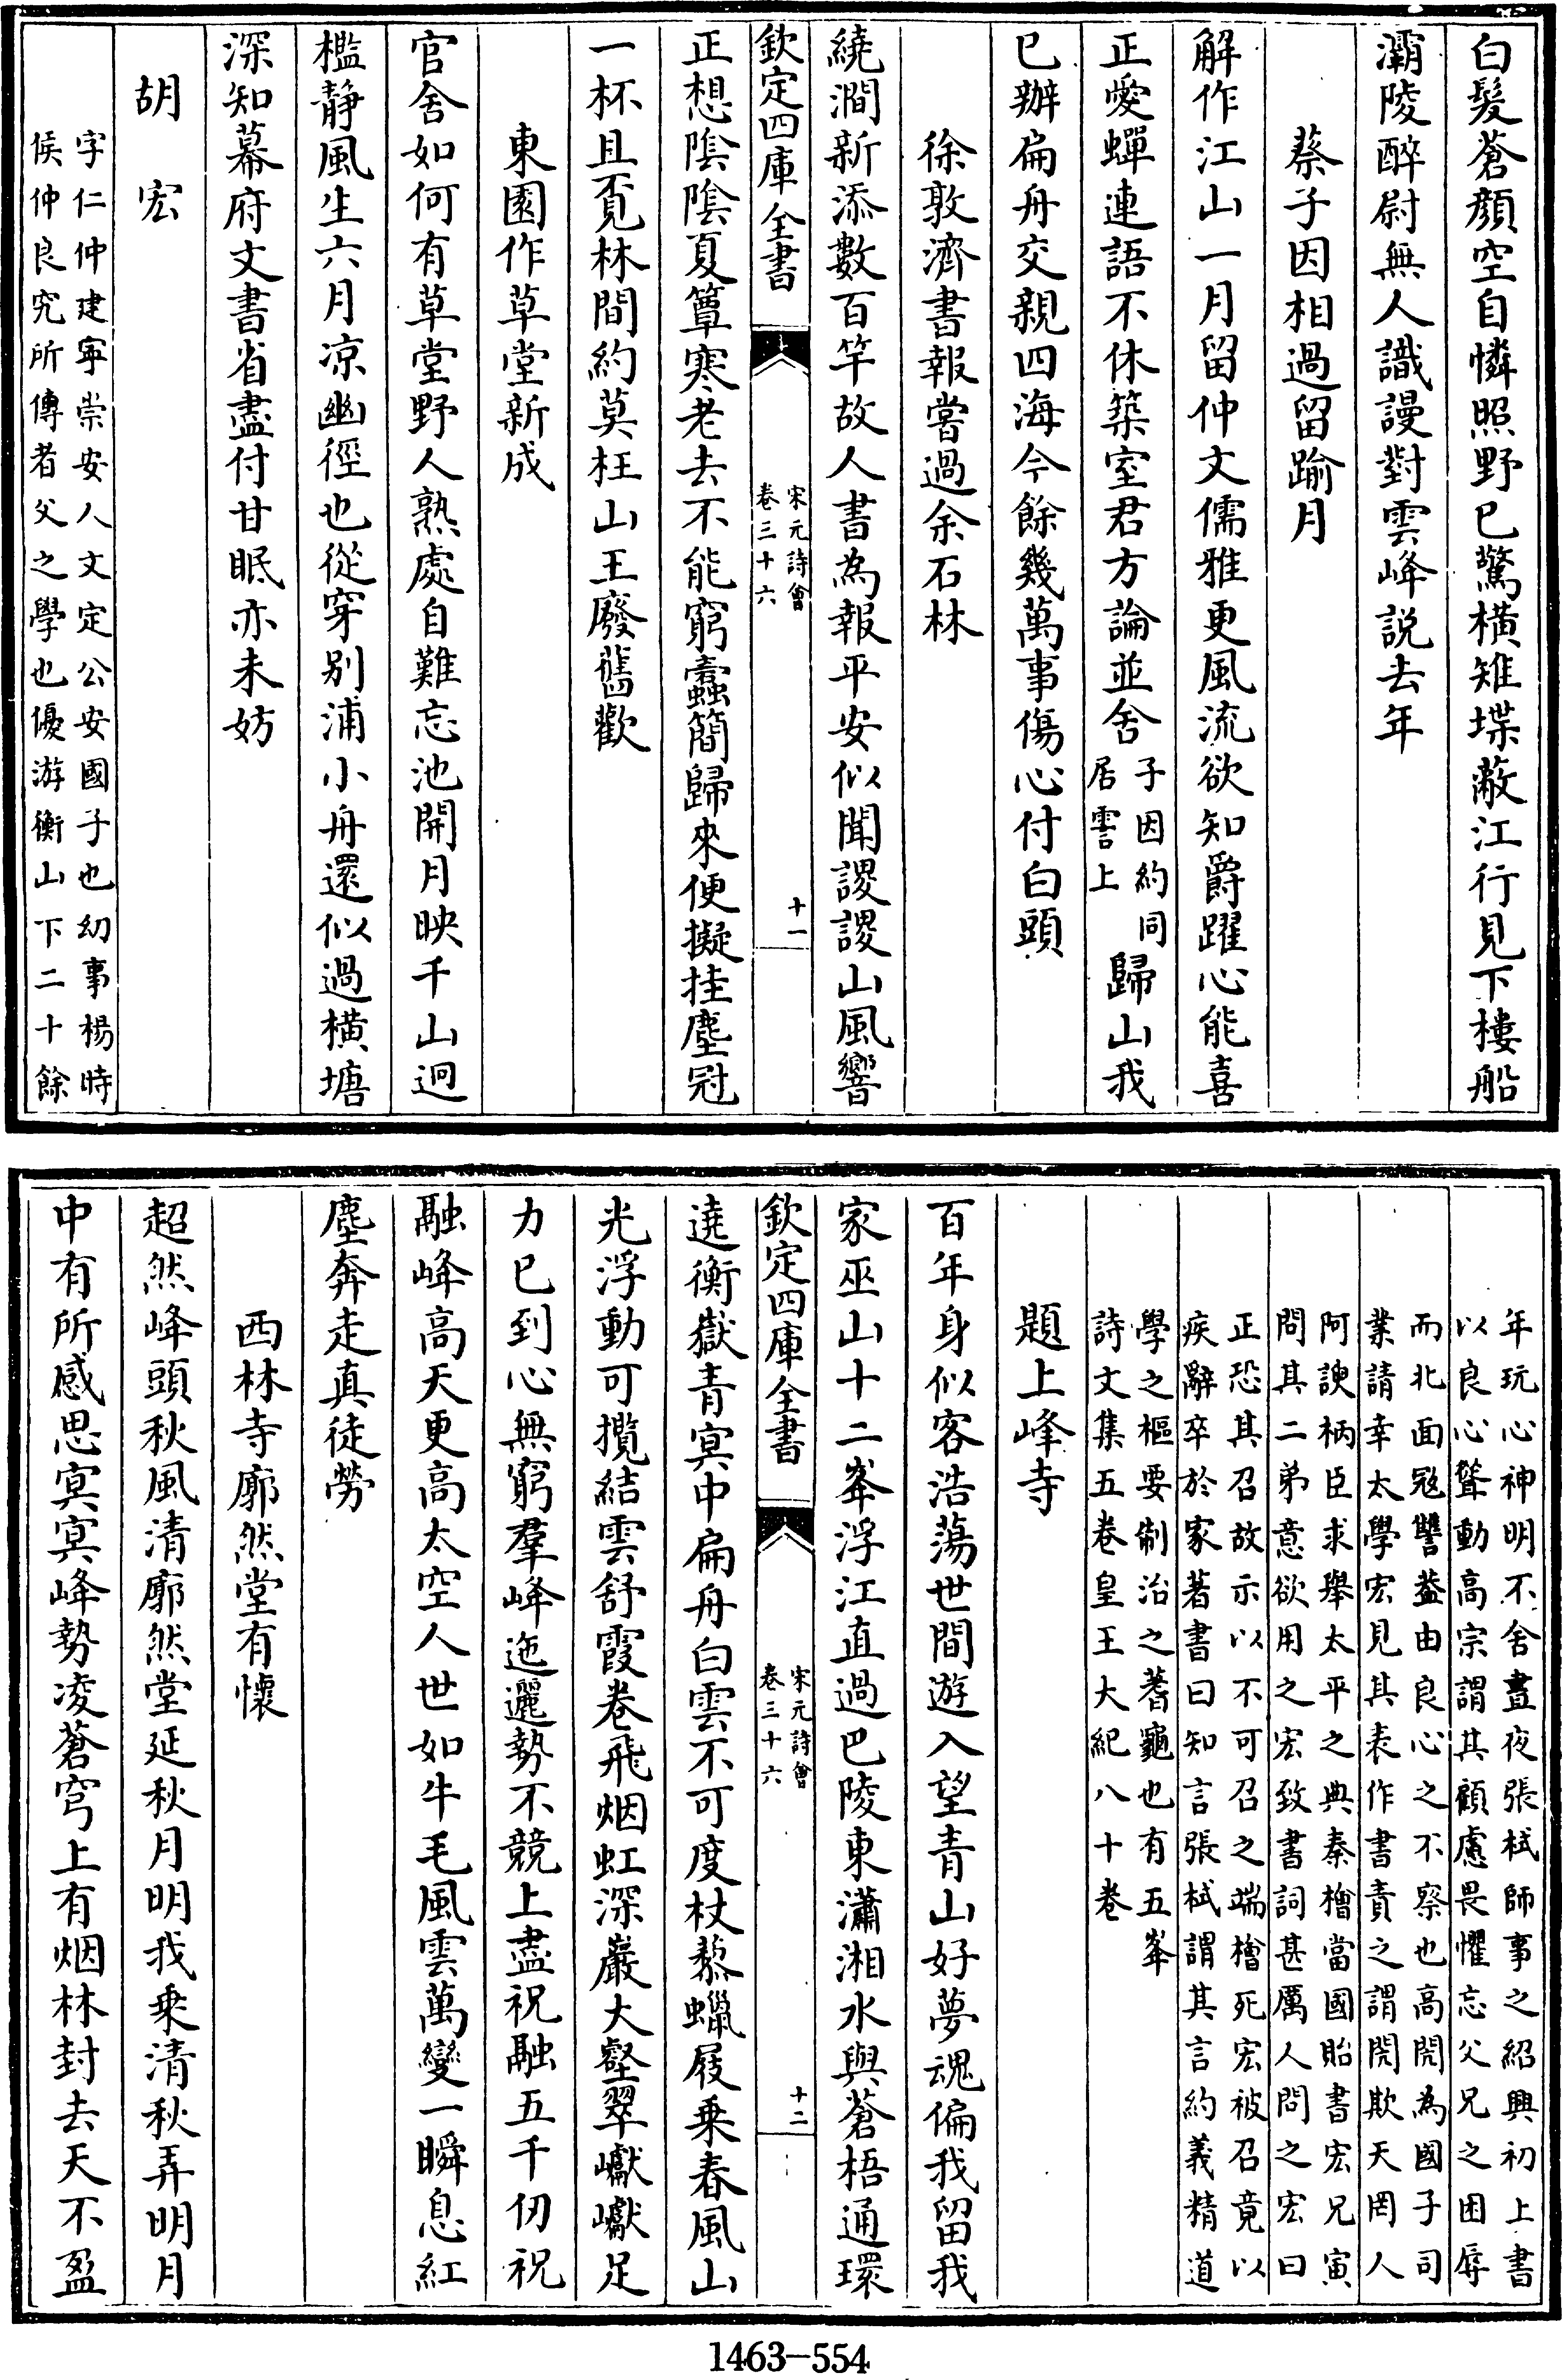 白髮蒼顔空自憐照野已驚横雉堞蔽江行見下樓船
灞陵醉尉無人識謾對雲峰説去年
蔡子因相過留踰月
解作江山一月留仲文儒雅更風流欲知爵躍心能喜
正愛蟬連語不休築室君方論並舍子因約同居霅上歸山我
已辦扁舟交親四海今餘幾萬事傷心付白頭
徐敦濟書報嘗過余石林
繞澗新添數百竿故人書為報平安似聞謖謖山風響
欽定四庫全書
宋元詩會
卷三十六
十一
正想陰陰夏簟寒老去不能窮蠹簡歸來便擬挂塵冠
一杯且覓林間約莫枉山王廢舊歡
東園作草堂新成
官舍如何有草堂野人熟處自難忘池開月映千山迥
檻静風生六月凉幽徑也從穿别浦小舟還似過横塘
深知幕府文書省盡付甘眠亦未妨
胡宏
字仁仲建寧崇安人文定公安國子也幼事楊時
侯仲良究所傳者父之學也優游衡山下二十餘
年玩心神明不舍晝夜張栻師事之紹興初上書
以良心聳動高宗謂其顧慮畏懼忘父兄之困辱
而北面冦讐葢由良心之不察也高閌為國子司
業請幸太學宏見其表作書責之謂閌欺天罔人
阿諛柄臣求舉太平之典秦檜當國貽書宏兄寅
問其二弟意欲用之宏致書詞甚厲人問之宏曰
正恐其召故示以不可召之端檜死宏被召竟以
疾辭卒於家著書曰知言張栻謂其言約義精道
學之樞要制治之蓍龜也有五峯
詩文集五卷皇王大紀八十卷
題上峰寺
百年身似客浩蕩世間游入望青山好夢魂偏我留我
家巫山十二峯浮江直過巴陵東瀟湘水與蒼梧通環
欽定四庫全書
宋元詩會
卷三十六
十二
遶衡嶽青冥中扁舟白雲不可度杖藜蠟屐乗春風山
光浮動可攬結雲舒霞卷飛烟虹深巖大壑翠巘巘足
力已到心無窮羣峰迤邐勢不競上盡祝融五千仞祝
融峰高天更高太空人世如牛毛風雲萬變一瞬息紅
塵奔走真徒勞
西林寺廓然堂有懷
超然峰頭秋風清廓然堂延秋月明我乗清秋弄明月
中有所感思冥冥峰勢凌蒼穹上有烟林封去天不盈
1463-554